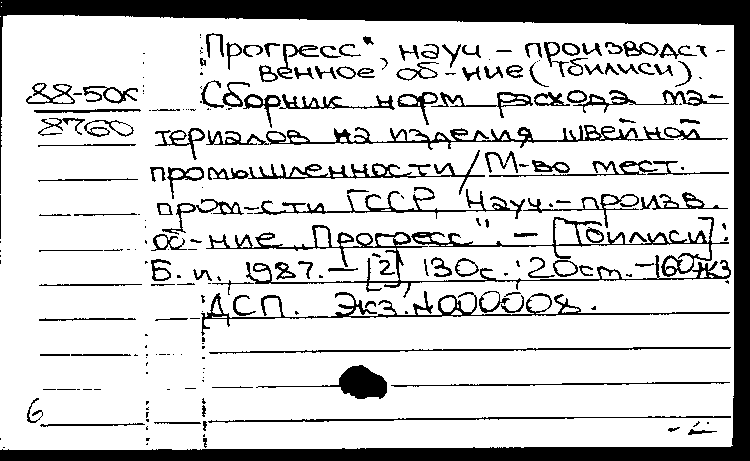 „Прогресс", науч-производст-
венное об-ние (Тбилиси).
88-50к Сборник норм расхода ма-
8760 териалов на изделия швейной
промышленности/М-во мест.
пром-сти ГССР, Науч.-произв.
об-ние „Прогресс". - [Тбилиси]:
Б. и., 1987. - [2], 130с.; 20см. - 160экз
ДСП. Экз. N000008.
6